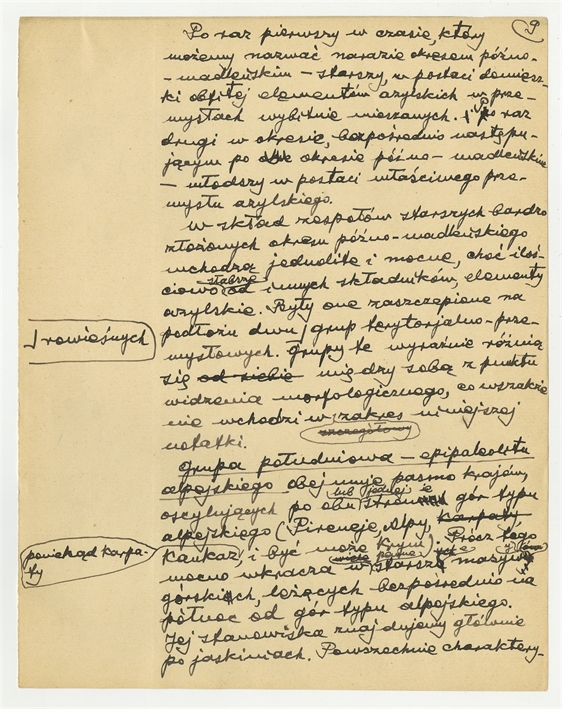 9
Po raz pierwszy w czasie, który
możemy nazwać narazie okresem późno-
-madleńskim – starszy, w postaci domiesz-
ki obfitej elementów azylskich w prze-
mysłach wybitnie mieszanych. Po raz
drugi w okresie, bezpośrednio następu-
jącym po okresie późno-madleńskim
– młodszy w postaci właściwego prze-
mysłu azylskiego.
W skład zespołów starszych bardzo
złożonych okresu późno-madleńskiego
wchodzą jednolite i mocne, choć iloś-
ciowo słabsze od innych składników, elementy
azylskie. Były one zaszczepione na
podłożu dwu ⌈ grup terytorjalno-prze-
⌈ rówieśnych
mysłowych. Grupy te wyraźnie różnią
się od siebie między sobą z punktu
widzenia morfologicznego, co wszakże
nie wchodzi w zakres niniejszej
szczegółowy
notatki.
Grupa południowa – epipaleolitu
alpejskiego obejmuje pasmo krajów,
lub jednej
oscylujących po obu stronach gór typu
alpejskiego (Pireneje, Alpy, Karpaty
poniekąd Karpa-
ty
Kaukaz, i być może Krym). Prócz tego
mocno wkracza w starsze masywy
górskie, leżących bezpośrednio na
północ od gór typu alpejskiego.
Jej stanowiska znajdujemy głównie
po jaskiniach. Powszechnie charaktery-